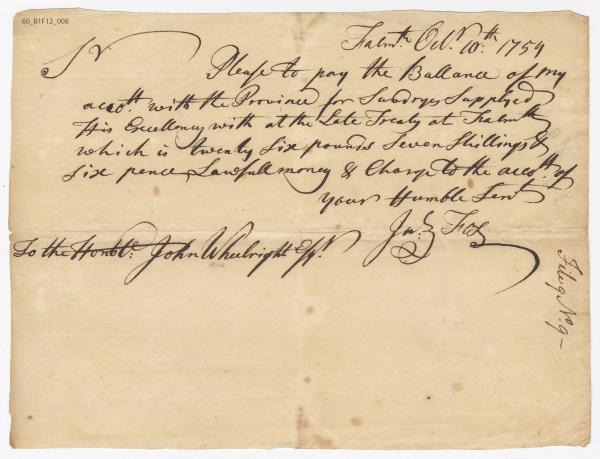 60_B1F12_008
Falmth. Octr. 10th. 1754
Sr
Please to pay the Ballance of my
accott. with the Province for Sundrys Supplyed
His Excellency with at the Late Treaty at Falmth
which is twenty Six pounds Seven Shillings &
Six pence Lawfull money & Charge to the accott. of
Your Humble Servt
Jno. Fox
To the Honble. John Wheelwright Esqr.
No. 9